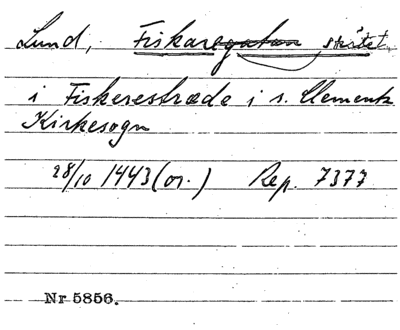 Lund, Fiskaregatan stråtet.
i Fiskerestræde i s. Clements
Kirkesogn
28/10 1443 (or.) Rep. 7377
Nr 5856.